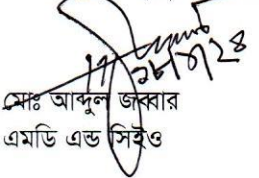 মোঃ আব্দুল জব্বার
এমডি এন্ড সিইও